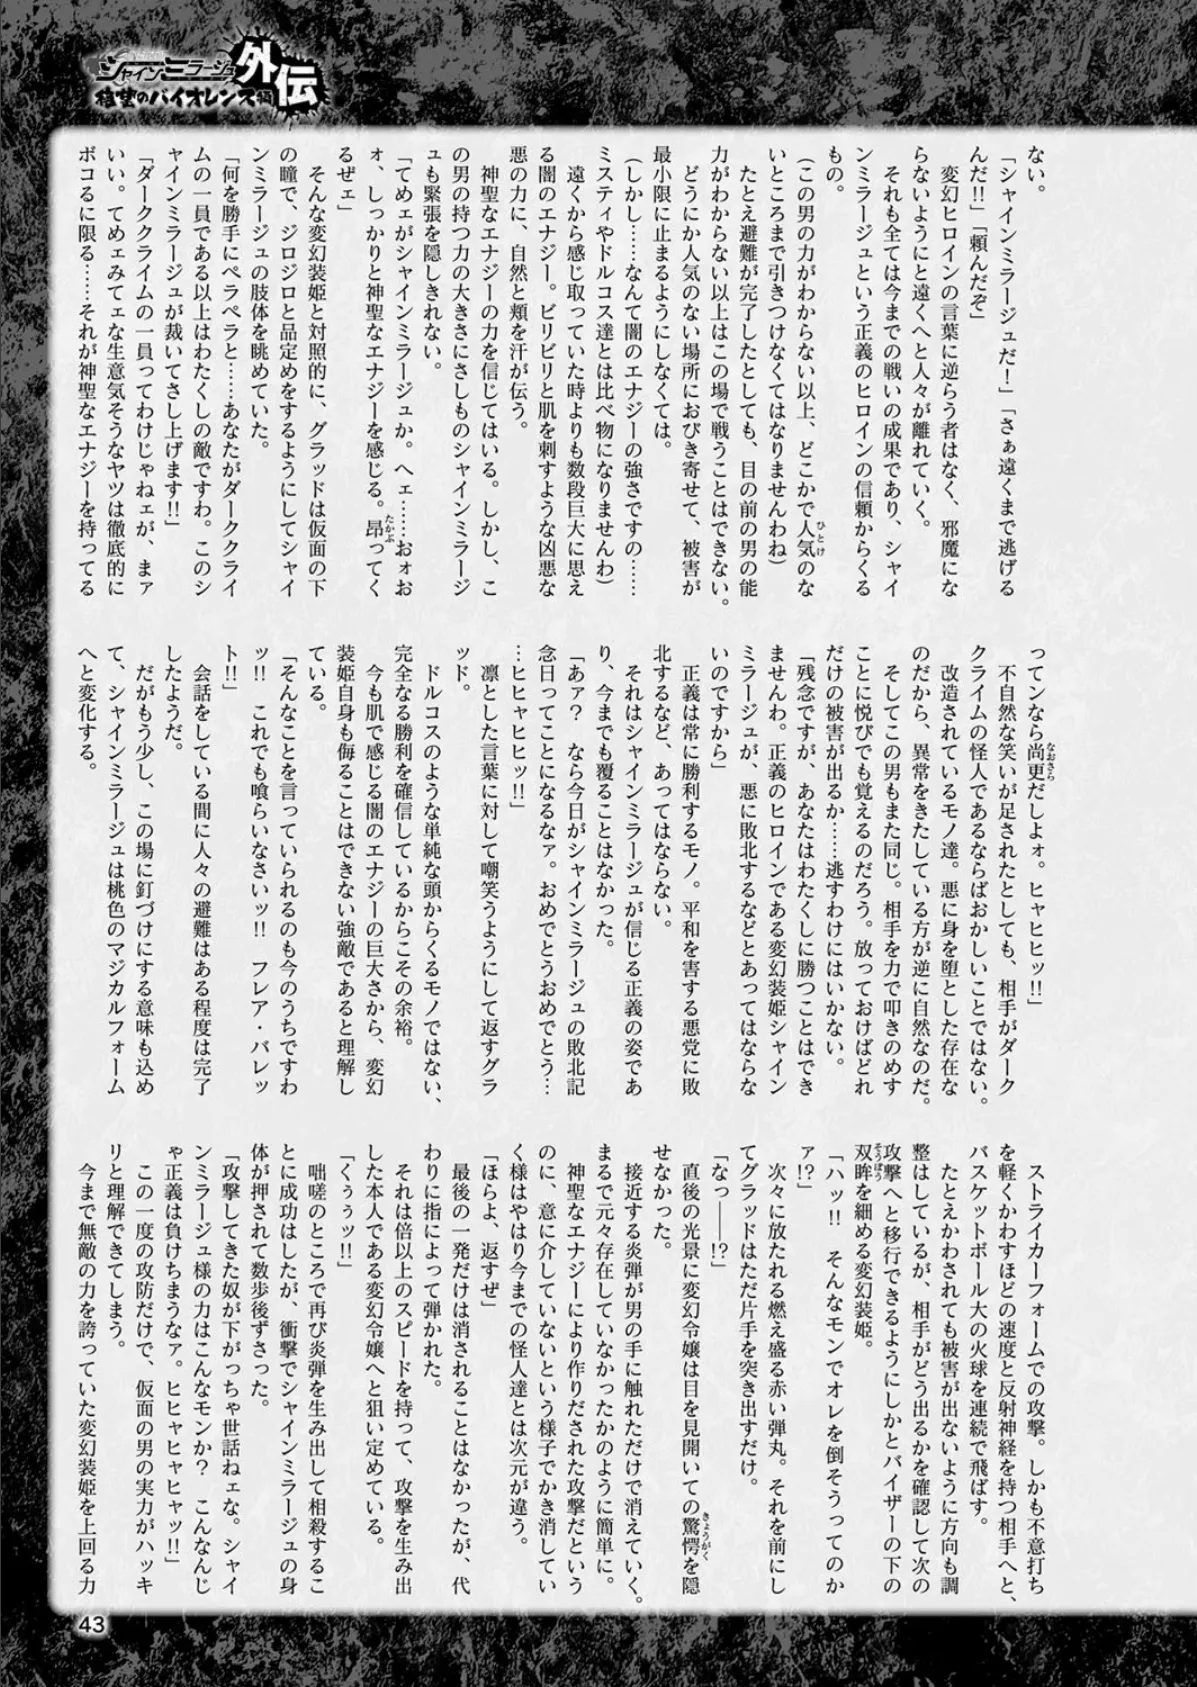 シャインミラージュ
外伝
絶望のバイオレンス編
ない。
「シャインミラージュだ！」「さぁ遠くまで逃げる
んだ!!」「頼んだぞ」
変幻ヒロインの言葉に逆らう者はなく、邪魔にな
らないようにと遠くへと人々が離れていく。
それも全ては今までの戦いの成果であり、シャイ
ンミラージュという正義のヒロインの信頼からくる
もの。
（この男の力がわからない以上、どこかで人気のな
いところまで引きつけなくてはなりませんわね）
たとえ避難が完了したとしても、目の前の男の能
力がわからない以上はこの場で戦うことはできない。
どうにか人気のない場所におびき寄せて、被害が
最小限に止まるようにしなくては。
（しかし……なんて闇のエナジーの強さですの……
ミスティやドルコス達とは比べ物になりませんわ）
遠くから感じ取っていた時よりも数段巨大に思え
る闇のエナジー。ビリビリと肌を刺すような凶悪な
悪の力に、自然と頬を汗が伝う。
神聖なエナジーの力を信じてはいる。しかし、こ
の男の持つ力の大きさにさしものシャインミラージ
ュも緊張を隠しきれない。
「てめェがシャインミラージュか。へェ……おォお
ォ、しっかりと神聖なエナジーを感じる。昂ってく
るぜェ」
そんな変幻装姫と対照的に、グラッドは仮面の下
の瞳で、ジロジロと品定めをするようにしてシャイ
ンミラージュの肢体を眺めていた。
「何を勝手にペラペラと……あなたがダーククライ
ムの一員である以上はわたくしの敵ですわ。このシ
ャインミラージュが裁いてさし上げます!!」
「ダーククライムの一員ってわけじゃねェが、まァ
いい。てめェみてェな生意気そうなヤツは徹底的に
ボコるに限る……それが神聖なエナジーを持ってる
ってンなら尚更だしよォ。ヒャヒヒッ!!」
不自然な笑いが足されたとしても、相手がダーク
クライムの怪人であるならばおかしいことではない。
改造されているモノ達。悪に身を堕とした存在な
のだから、異常をきたしている方が逆に自然なのだ。
そしてこの男もまた同じ。相手を力で叩きのめす
ことに悦びでも覚えるのだろう。放っておけばどれ
だけの被害が出るか……逃すわけにはいかない。
「残念ですが、あなたはわたくしに勝つことはでき
ませんわ。正義のヒロインである変幻装姫シャイン
ミラージュが、悪に敗北するなどとあってはならな
いのですから」
正義は常に勝利するモノ。平和を害する悪党に敗
北するなど、あってはならない。
それはシャインミラージュが信じる正義の姿であ
り、今までも覆ることはなかった。
「あァ？　なら今日がシャインミラージュの敗北記
念日ってことになるなァ。おめでとうおめでとう…
…ヒヒャヒヒッ!!」
凛とした言葉に対して嘲笑うようにして返すグラ
ッド。
ドルコスのような単純な頭からくるモノではない、
完全なる勝利を確信しているからこその余裕。
今も肌で感じる闇のエナジーの巨大さから、変幻
装姫自身も侮ることはできない強敵であると理解し
ている。
「そんなことを言っていられるのも今のうちですわ
ッ!!　これでも喰らいなさいッ!!　フレア・バレッ
ト!!」
会話をしている間に人々の避難はある程度は完了
したようだ。
だがもう少し、この場に釘づけにする意味も込め
て、シャインミラージュは桃色のマジカルフォーム
へと変化する。
ストライカーフォームでの攻撃。しかも不意打ち
を軽くかわすほどの速度と反射神経を持つ相手へと、
バスケットボール大の火球を連続で飛ばす。
たとえかわされても被害が出ないように方向も調
整はしているが、相手がどう出るかを確認して次の
攻撃へと移行できるようにしかとバイザーの下の
双眸を細める変幻装姫。
「ハッ!!　そんなモンでオレを倒そうってのか
ァ!?」
次々に放たれる燃え盛る赤い弾丸。それを前にし
てグラッドはただ片手を突き出すだけ。
「なっ――!?」
直後の光景に変幻令嬢は目を見開いての驚愕を隠
せなかった。
接近する炎弾が男の手に触れただけで消えていく。
まるで元々存在していなかったかのように簡単に。
神聖なエナジーにより作りだされた攻撃だという
のに、意に介していないという様子でかき消してい
く様はやはり今までの怪人達とは次元が違う。
「ほらよ、返すぜ」
最後の一発だけは消されることはなかったが、代
わりに指によって弾かれた。
それは倍以上のスピードを持って、攻撃を生み出
した本人である変幻令嬢へと狙い定めている。
「くぅぅッ!!」
咄嗟のところで再び炎弾を生み出して相殺するこ
とに成功はしたが、衝撃でシャインミラージュの身
体が押されて数歩後ずさった。
「攻撃してきた奴が下がっちゃ世話ねェな。シャイ
ンミラージュ様の力はこんなモンか？　こんなんじ
ゃ正義は負けちまうなァ。ヒヒャヒャヒャッ!!」
この一度の攻防だけで、仮面の男の実力がハッキ
リと理解できてしまう。
今まで無敵の力を誇っていた変幻装姫を上回る力
43